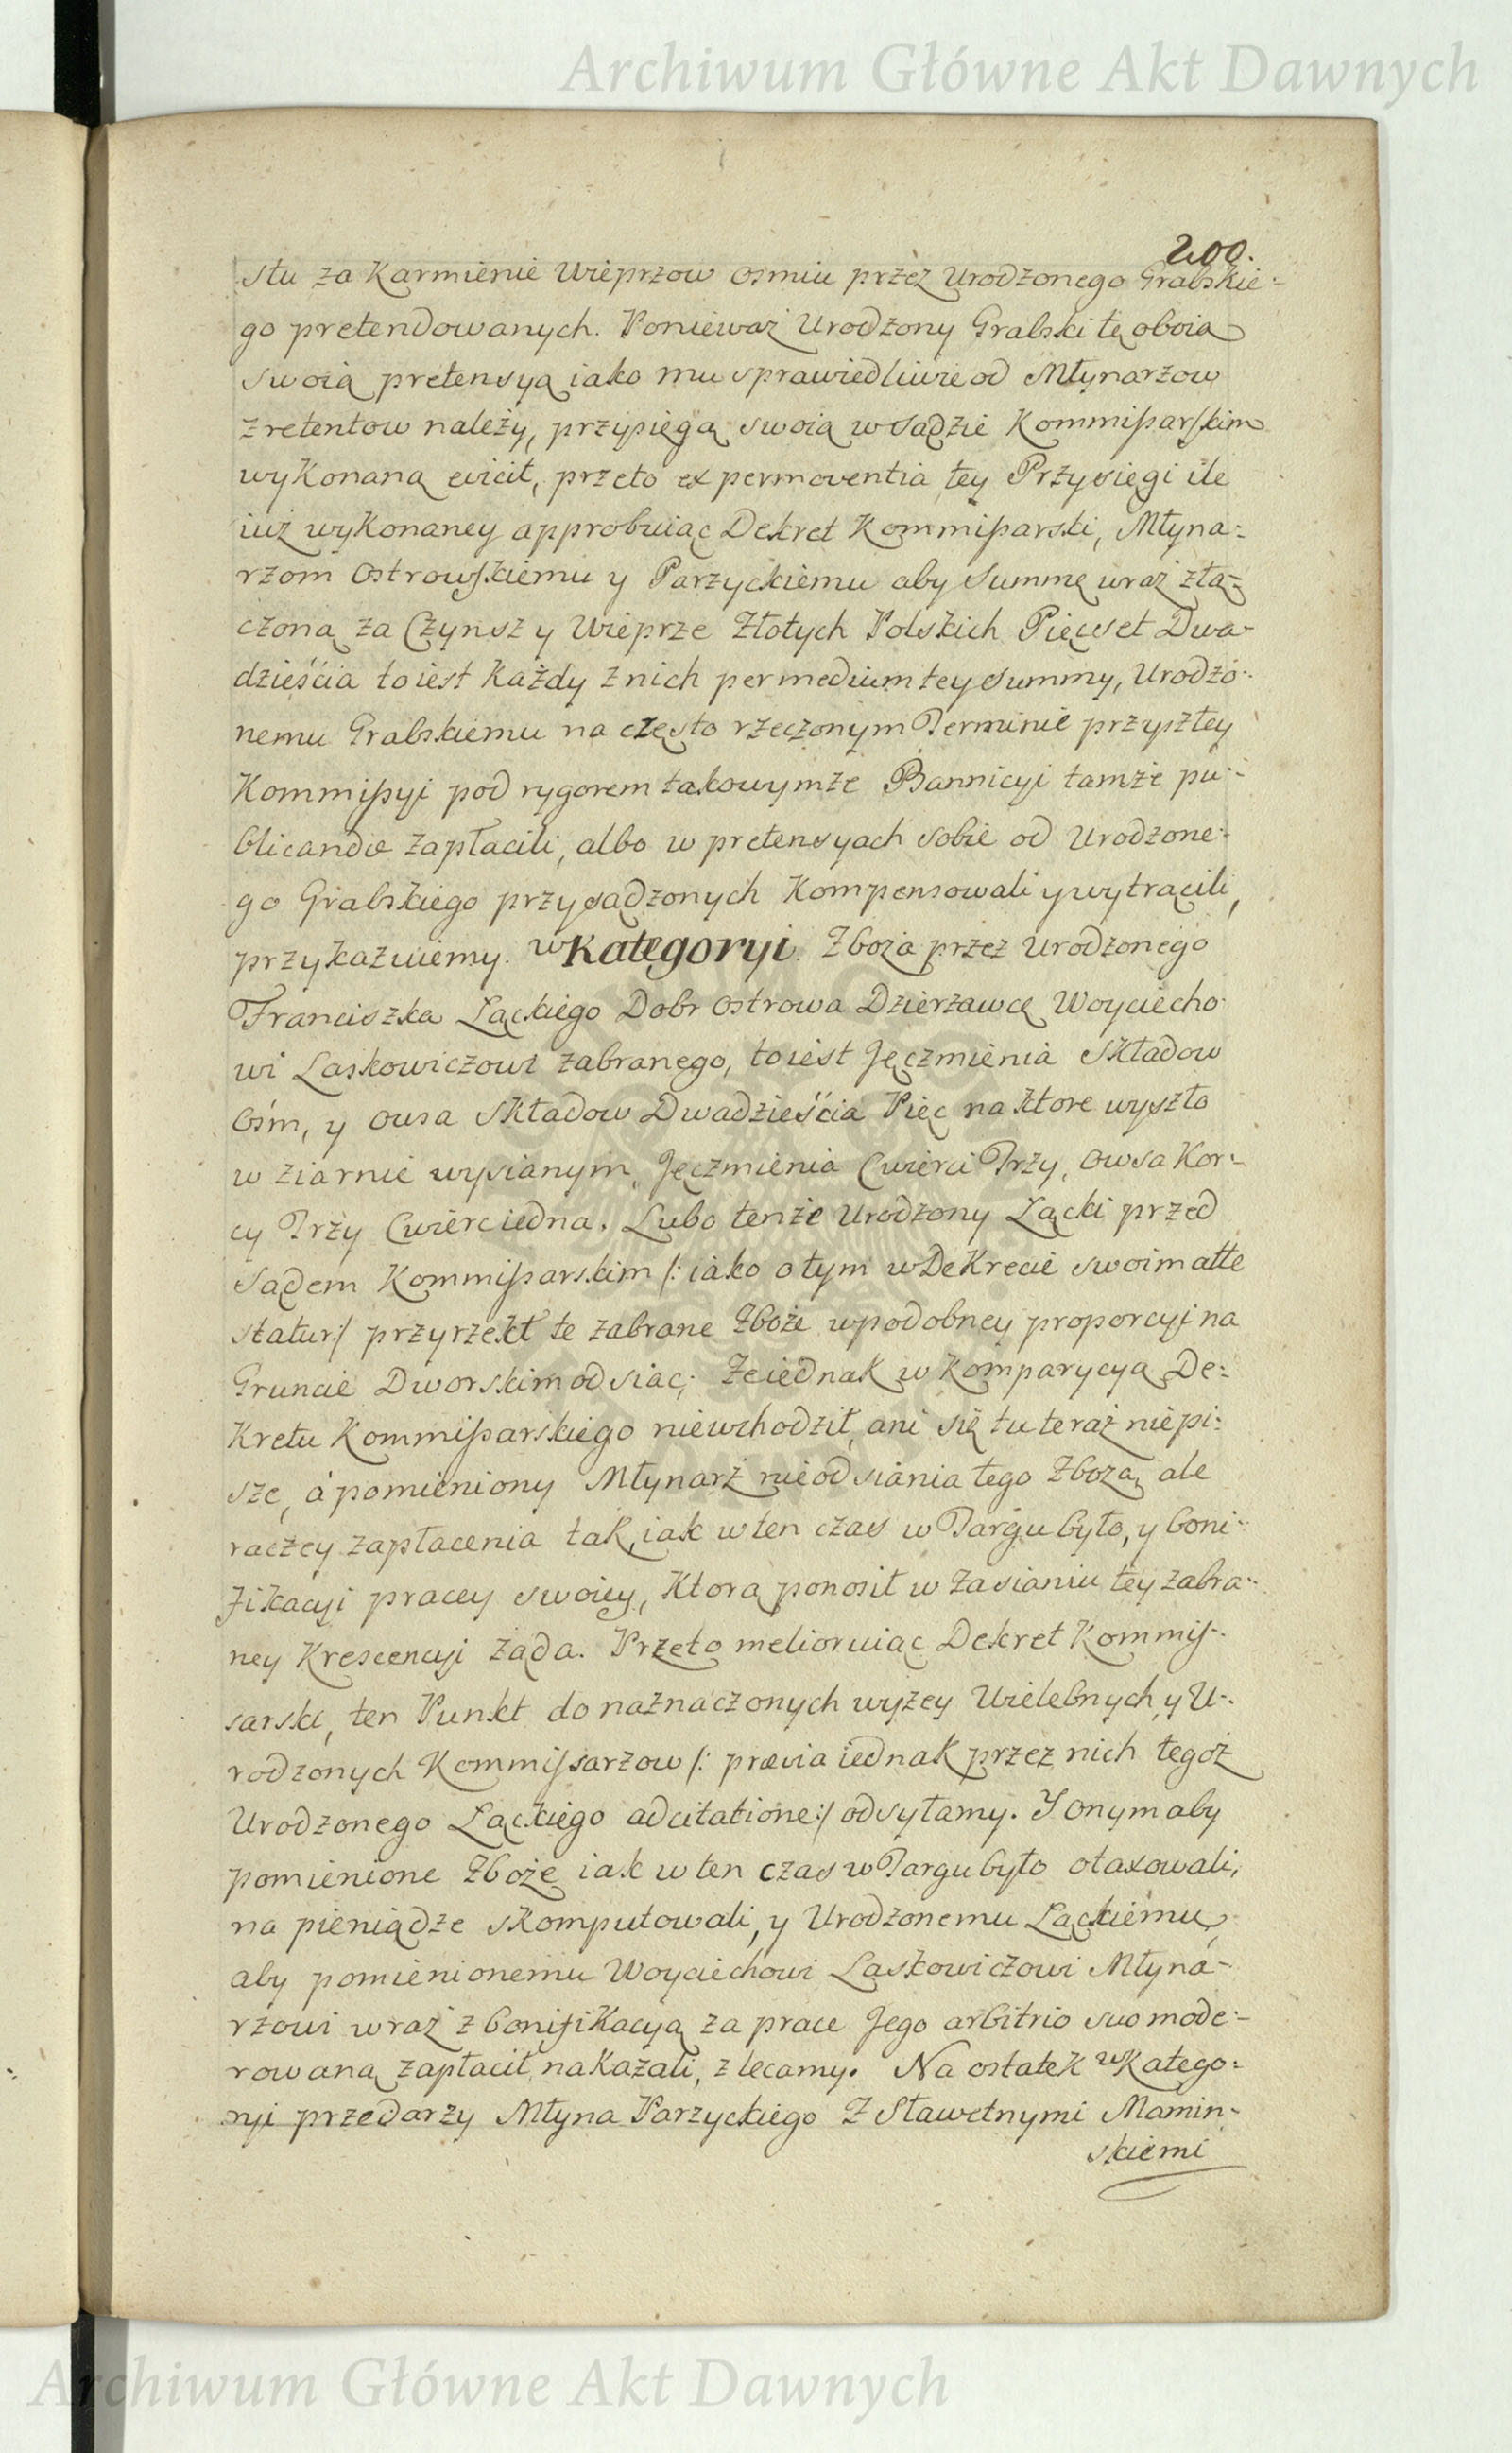 Archiwum Główne Akt Dawnych
200.
stu za Karmienie Wieprzow osmiu przez Urodzonego Grabskie-
go pretendowanych. Ponieważ Urodzony Grabski tę oboią
swoią pretensyą iako mu sprawiedliwie od Młynarzow
z retentow należy, przysięgą swoią w Sądzie Kommissarskim
wykonaną evicit, przeto ex permoventia tey Przysięgi ile
iuż wykonaney approbuiąc Dekret Kommissarski, Młyna-
rzom Ostrowskiemu y Parzyckiemu aby Summę wraz złą-
czoną za Czynsz y Wieprze Złotych Polskich Pięcset Dwa-
dzieścia to iest Każdy z nich per medium tey summy, Urodzo-
nemu Grabskiemu na często rzeczonym Terminie przyszłey
Kommissyi pod rygorem takowymże Bannicyi tamże pu-
blicandæ zapłacili, albo w pretensyach sobie od Urodzone-
go Grabskiego przysądzonych Kompensowali y wytrącili,
przykazuiemy. w Kategoryi Zboża przez Urodzonego
Franciszka Łąckiego Dobr Ostrowa Dzierżawcę Woyciecho-
wi Laskowiczowi zabranego, to iest Jęczmienia Składow
Ośm, y Owsa Składow Dwadzieścia Pięc na ktore wyszło
w ziarnie wysianym, Jęczmienia Cwierci Trzy, Owsa Kor-
cy Trzy Cwierc iedna. Lubo tenże Urodzony Łącki przed
Sądem Kommissarskim /: iako o tym w Dekrecie swoim atte
statur :/ przyrzekł te zabrane Zboże w podobney proporcyi na
Gruncie Dworskim odsiac; Że iednak w Komparycyą De-
kretu Kommissarskiego niewchodził, ani się tu teraz niepi-
sze, á pomieniony Młynarz nie odsiania tego Zboża, ale
raczey zapłacenia tak, iak w ten czas w Targu było, y boni-
fikacyi pracey swoiey, Ktorą ponosił w Zasianiu tey zabra-
ney Krescencyi żąda. Przeto melioruiąc Dekret Kommis-
sarski, ten Punkt do naznaczonych wyżey Wielebnych y U-
rodzonych Kommissarzow /: prævia iednak przez nich tegoż
Urodzonego Łąckiego adcitatione :/ odsyłamy. Y onym aby
pomienione Zboże iak w ten czas w Targu było otaxowali,
na pieniądze skomputowali, y Urodzonemu Łąckiemu,
aby pomienionemu Woyciechowi Laskowiczowi Młyna-
rzowi wraz z bonifikacyą za prace Jego arbitrio suo mode-
rowaną zapłacił, nakazali, zlecamy. Na ostatek w Katego-
ryi przedarzy Młyna Parzyckiego z Sławetnymi Mamin-
skiemi
Archiwum Główne Akt Dawnych